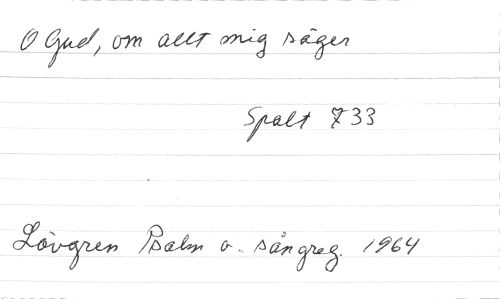 O Gud, om allt mig säger
Spalt 733
Lövgren Psalm o. sångreg. 1964